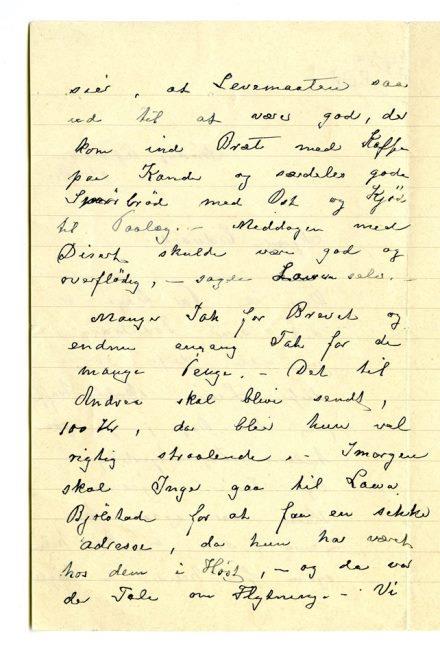 sier, at Levemaaten saa
ud til at være god, der
kom ind Bræt med Kaffe
paa Kande og særdeles gode
Smörbröd med Ost og Kjöd
til Paalæg. - Meddagen med
Disert skulde være god og
overflödig, - sagde selv. -
Mange Tak for Brevet og
endnu engang Tak for de
mange Penge. - Det til
Andrea skal blive sendt,
100 Kr, da blir hun vel
rigtig straalende. - Imorgen
skal Inga gaa til Lawa
Bjölstad for at faa en sikke
adresse, da hun har været
hos dem i Höst, - og da var
der Tale om Flytning. - Vi